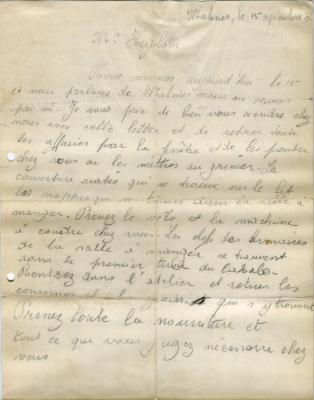 Malines, le 15 septembre
Mr
Nous sommes aujourd'hui le 15
et nous partons de Malines nous ne savons
pas où. Je vous prie de bien vous rendre chez
nous avec cette lettre et de retirer toute
les affaires par la et de les prendre
chez vous ou les mettres au grenier. La
couverture ouatée qui se trouve sur le lit
les nappes qui se trouve dans la salle à
manger. Prenez le vélo et la machine
à coudre chez vous. Les clefs des armoires
de la salle à manger se trouvent
dans le premier tiroir du
Rentrez dans l'atelier et retirer les
conserves et qui s'y trouvent
Prenez toute la nourriture et
tout ce que vous jugez nécessaire chez
vous